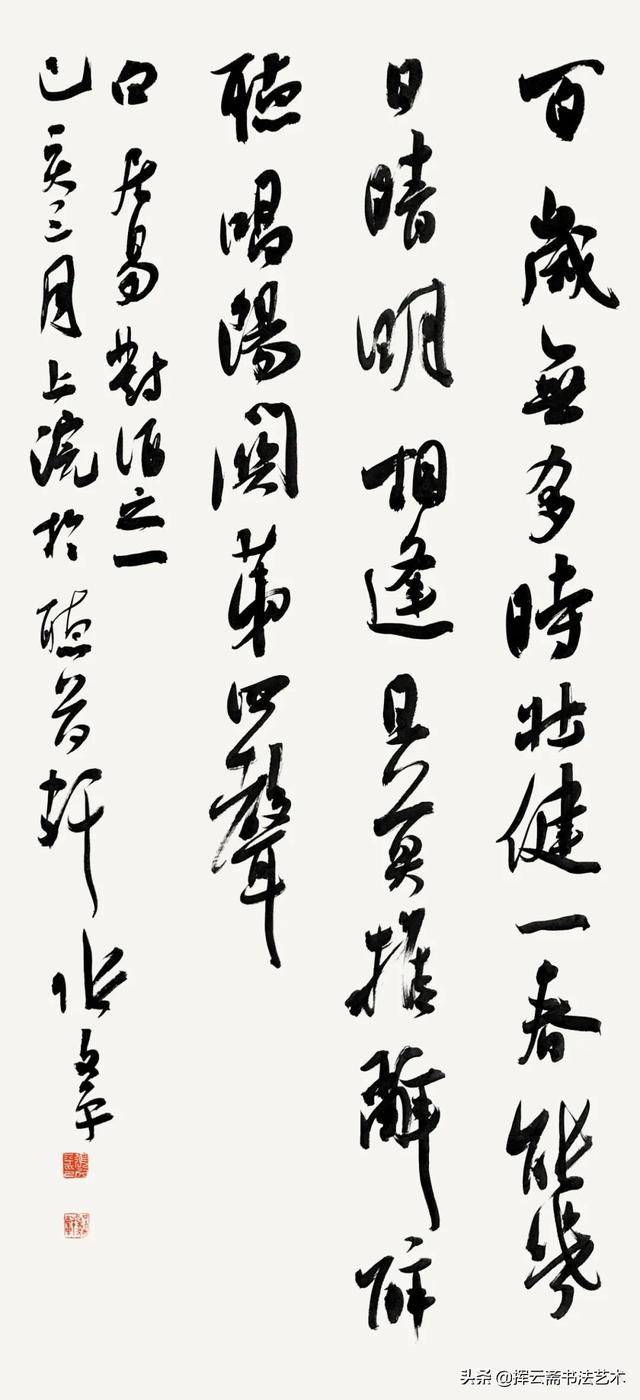 百歲無多時壯健一春能幾
日晴明相逢且莫推辭醉
聽唱陽關第四聲
白居易對酒之一
己亥三月上浣於聽音軒
头条 @挥云斋书法艺术